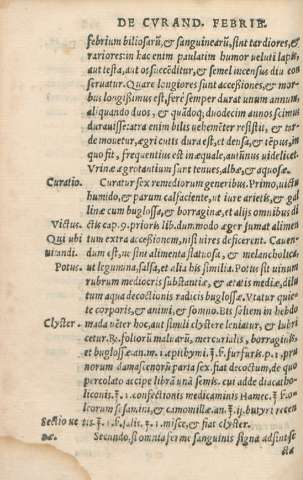 DE CVRAND. FEBRIB.
febrium biliosarũ, & sanguinearũ, sint tardiores, &
rariores: in hac enim paulatim humor veluti lapis,
aut testa, aut os succẽditur, & semel incensus diu con
seruatur. Quare longiores sunt accessiones, & mor-
bus longissimus est, ferè semper durat unum annum,
aliquando duos, & quãdoq; duodecim annos scimus
durauisse: atra enim bilis uehemẽter resistit, & tar
dè mouetur, agri cutis dura est, & densa, & tẽpus, in
quo fit, frequentius est inæquale, autũnus uidelicet.
Vrinæ ægrotantium sunt tenues, albæ, & aquosæ.
Curatio. Curatur sex remediorum generibus. Primo, uictu
humido, & parum calfaciente, ut iure arietis, & gal
linæ cum buglossa, & borragine, et alijs omnibus di
Victus. ctis cap. 9. prioris lib. dummodo æger iumat alimen
Qui ubi tum extra accessionem, nisi uires deficerent. Cauen
uitandi. dum est, ne sint alimenta flatuosa, & melancholica,
Potus. ut legumina, salsa, et alia his similia. Potus sit uinum
rubrum mediocris substantiæ, & ætatis mediæ, dilu
tum aqua decoctionis radicis buglossæ. Vtatur quie-
te corporis, & animi, & somno. Ets solum in hebdo
Clyster. mada uẽter hoc, aut simili clystere leniatur, & lubri
cetur. ℞. foliorũ maluarũ, mercurialis, borraginis,
et buglossæ an. m. 1. epithymi ℥.ß. furfuris p. 1. pru
norum damascenorũ paria sex. fiat decoctum, de quo
percolato accipe librã unã semis. cui adde diacatho-
liconis. ℥. 1. confectionis medicaminis Hamec. ℥.ß. o-
leorum sesamini, & camomillæ an. ℥. ij. butyri recen
Sectio ue tis. ℥. 1.ß. salis. ℥. 1. misce, & fiat clyster.
næ. Secundo, si omnia ferme sanguinis signa adsint se-
cta